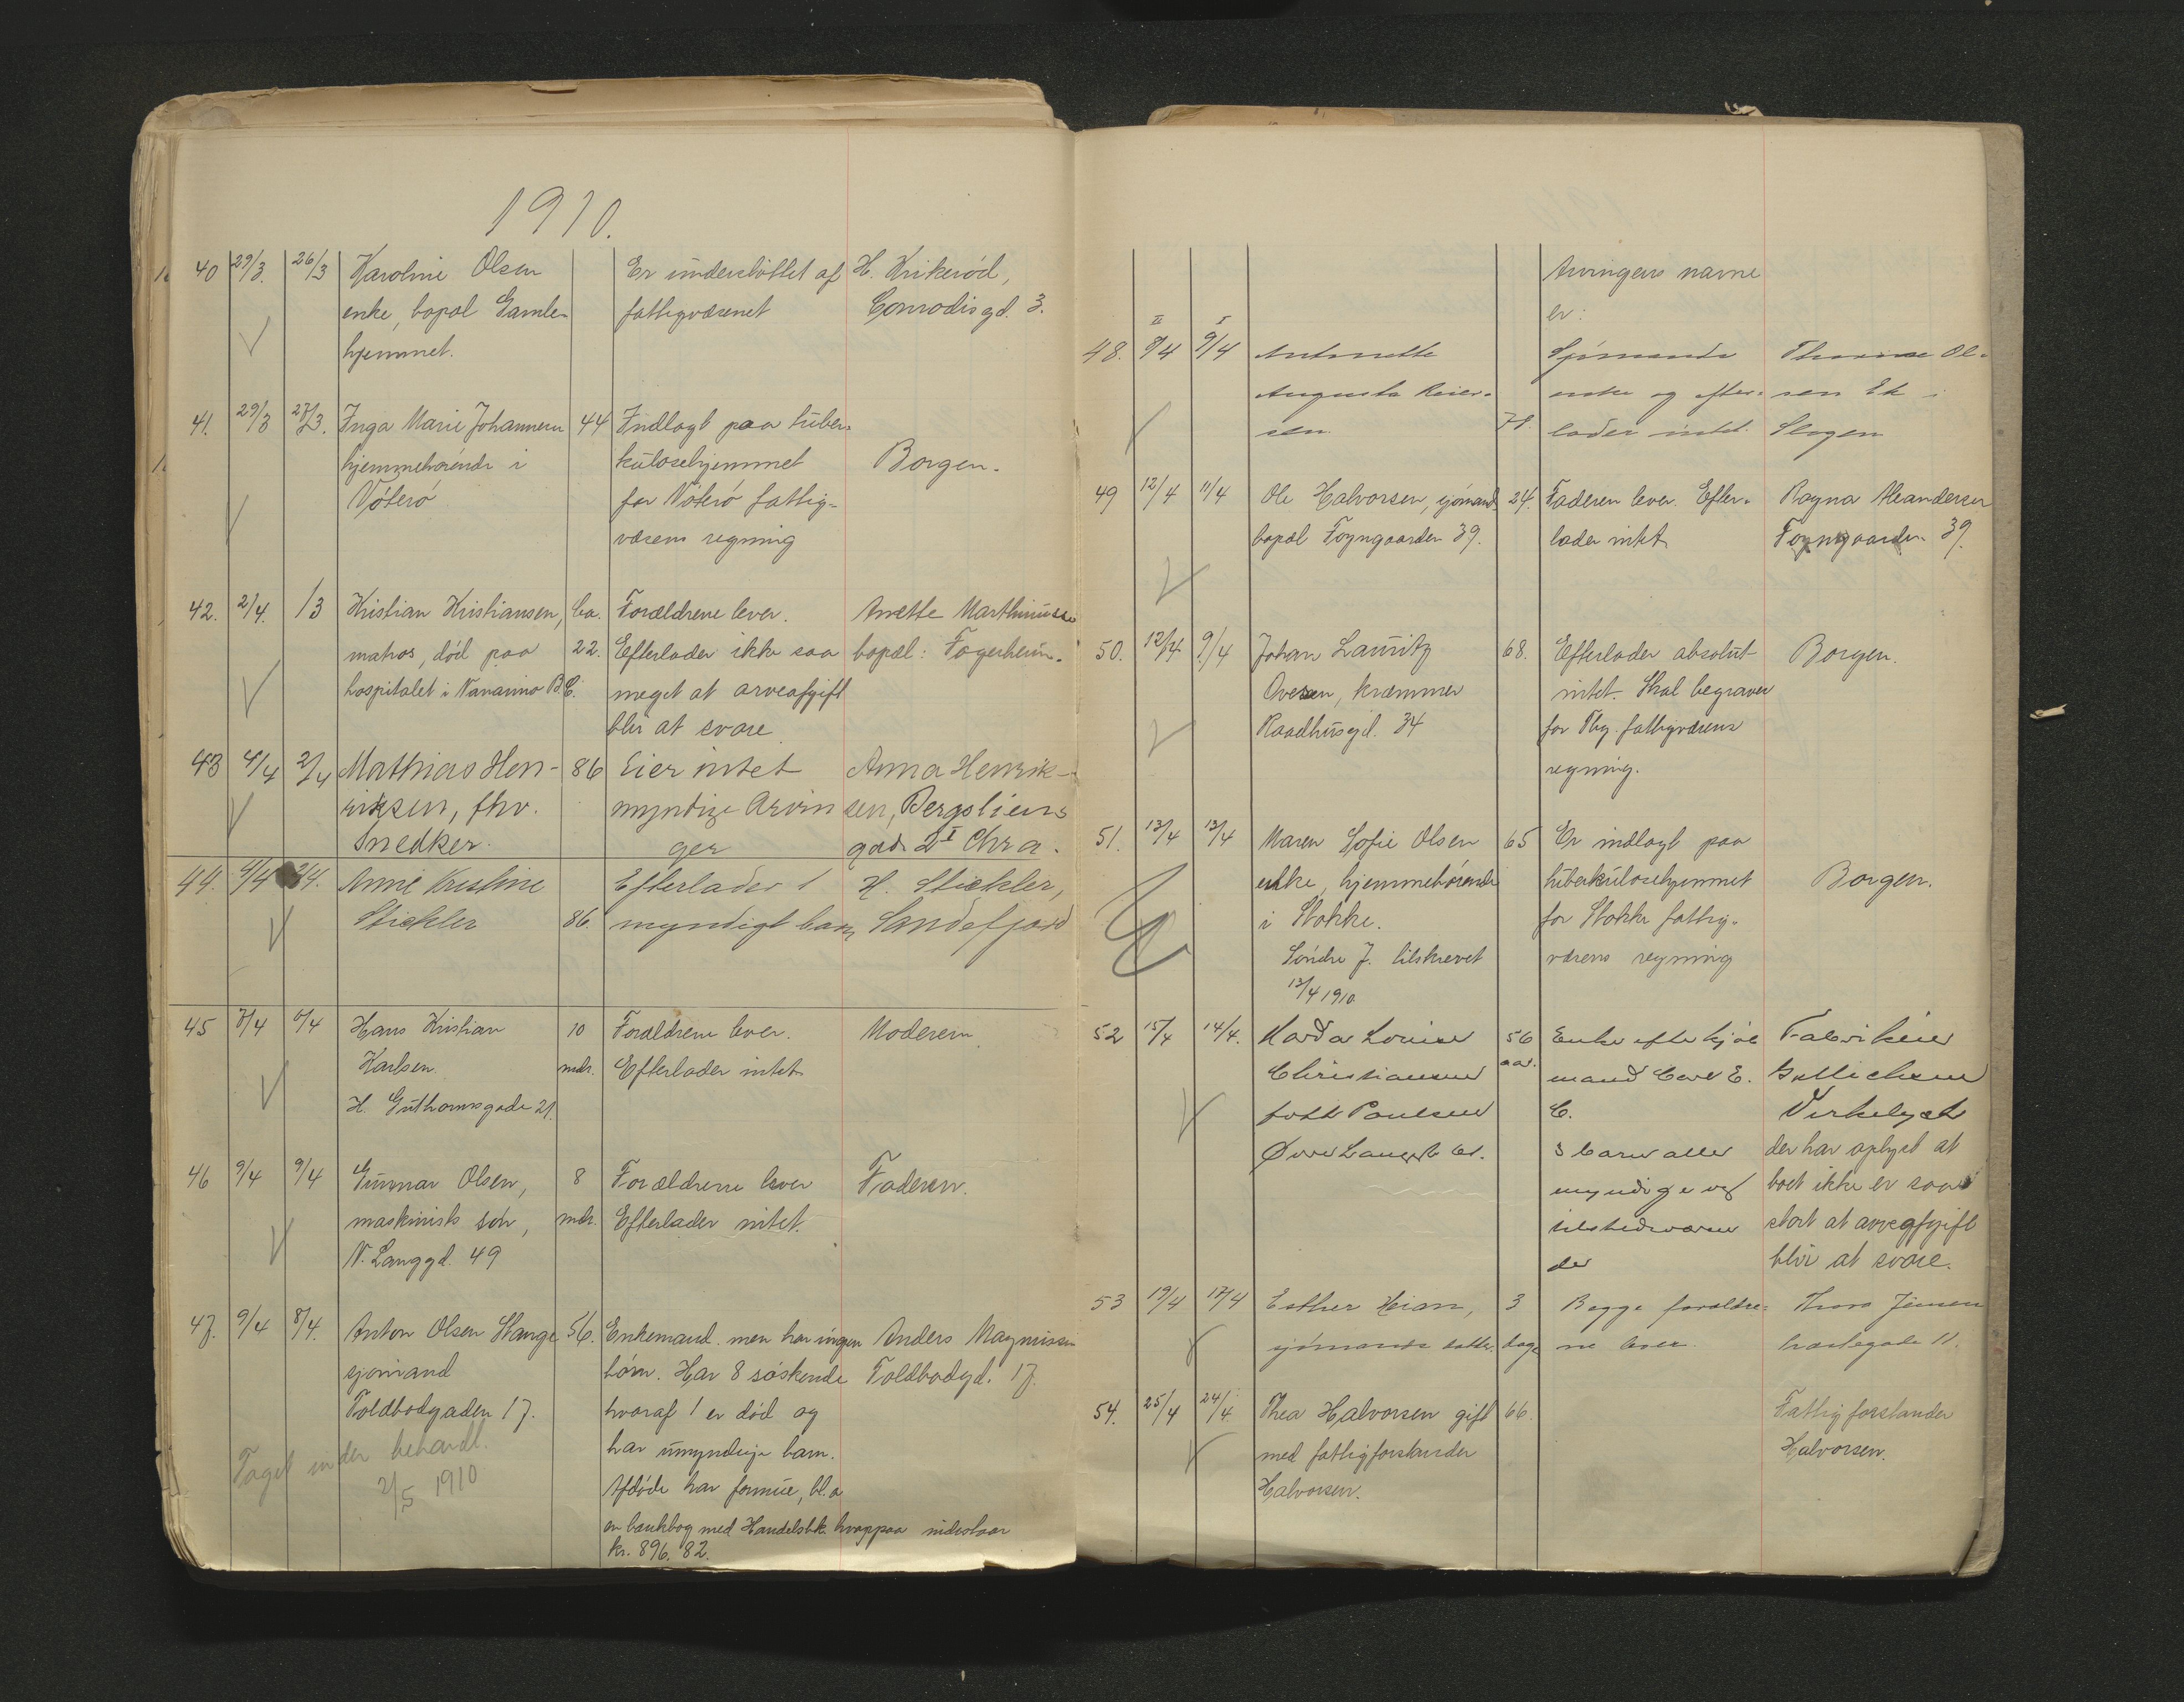 1910.
40 29/3. 26/3 Karoline Olsen Er understöttet af H. Krikeröd,
enke, bopæl Gamle- fattigvæsenet Conradisgd. 3.
hjemmet.
41. 29/3 27/3. Inga Marie Johannesen 44 Indlagt paa tuber-
hjemmehörende i kulosehjemmet Borgen.
Nöterö for Nöterö fattig-
væsens regning
42. 2/4. 1/3 Kristian Kristiansen, ca. Forældrene lever. Anette Marthinussen
matros, död paa 22. Efterlader ikke saa bopæl: Fagerheim.
hospitalet i Nanaimo B.C. meget at arveafgift
blir at svare
43 4/4 2/4 Mathias Hen- 86 Eier intet Anna Henrik-
riksen, fhv. myndige Arvin sen, Bergsliens
Snedker. ger gade 2 I Chra.
44. 4/4 Anne Kristine Efterlader 1 H. Stickler,
Stickler 86. myndigt barn Sandefjord
45 7/4 6/4 Hans Kristian 10 Forældrene lever. Moderen.
Karlsen. mdr. Efterlader intet
H. Guthormsgade 21.
46 9/4 9/4 Gunnar Olsen, 8 Forældrene lever Faderen.
maskinists sön, mdr. Efterlader intet
N. Langgd. 49
47. 9/4 8/4. Anton Olsen Stange 56. Enkemand men har ingen Anders Magnussen
sjömand börn. Har 8 söskende Toldbodgd. 17.
Toldbodgaden 17. hvoraf 1 er död og
Taget under behandl. har umyndige barn.
2/5 1910 Afdöde har formue, bl.a
en bankbog med Handelsbk. hvorpaa indestaar
kr. 896.82.
Arvingers navne
er:
II I
48. 9/4 9/4 Antonette Sjömands Thorine Ol-
Augusta Reier- enke og efter- sen Ek i
sen 78. lader intet. Slagen
49 12/4 11/4 Ole Halvorsen, sjömand 24. Faderen lever. Efter- Ragna Meandersen
bopæl Foyngaarden 39. lader intet Foyngaarden 39.
50. 12/4 9/4 Johan Lauritz 68. Efterlader absolut Borgen.
Ovesen, kræmmer intet. Skal begraves
Raadhusgd. 34 for Tbg. fattigvæsens
regning.
51. 13/4 13/4 Maren Sofie Olsen 65 Er indlagt paa
enke, hjemmehörende tuberkulosehjemmet Borgen.
i Stokke. for Stokke fattig-
Söndre J. tilskrevet væsens regning
13/4 1910
52 15/4 14/4. Louise 56 Enke efter Fabrikeier
Christiansen aar. mand Carl E.
født Paulsen C. Virkelyst
3 barn alle der har oplyst at
myndige og boet ikke er saa
tilstedeværen stort at arveafgift
de blir at svare.
53 19/4 17/4 Esther Heian, 3 Begge forældre- Jensen
sjömands datter. dage ne lever. 11.
54. 25/4 24/4. Thea Halvorsen gift 66. Fattigforstander
med fattigforstander Halvorsen.
Halvorsen.